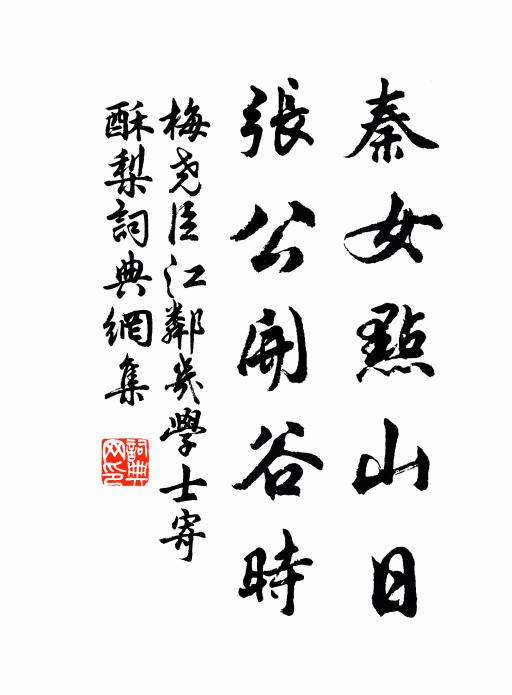 秦女點山日
張公開谷時
梅堯臣江鄰幾學士寄
酥梨詞典網集
詞典網印